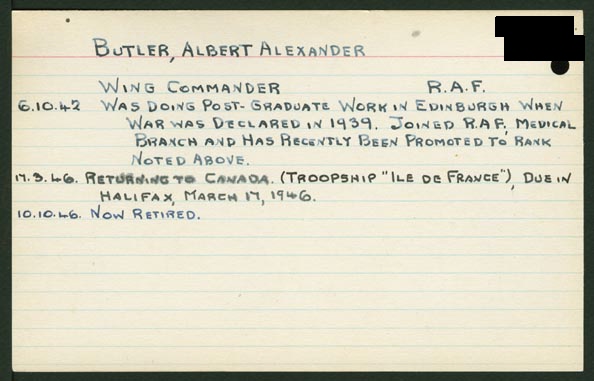 BUTLER, ALBERT ALEXANDER
WING COMMANDER R.A.F.
6.10.42 WAS DOING POST-GRADUATE WORK IN EDINBURGH WHEN
WAR WAS DECLARED IN 1939. JOINED R.A.F. MEDICAL
BRANCH AND HAS RECENTLY BEEN PROMOTED TO RANK
NOTED ABOVE.
17.3.46. RETURNING TO CANADA. (TROOPSHIP "ILE DE FRANCE"), DUE IN
HALIFAX, MARCH 17, 1946.
10.10.46. NOW RETIRED.